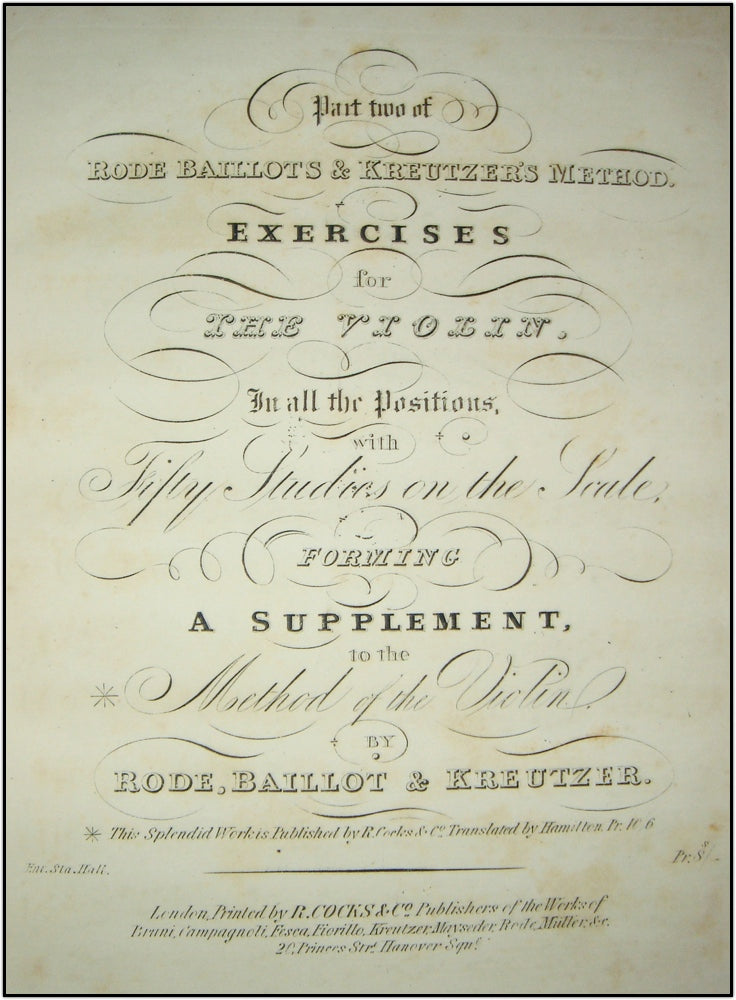 Part two of
RODE BAILLOTS & KREUTZER'S METHOD.
EXERCISES
for
THE VIOLIN,
In all the Positions,
with
Fifty Studies on the Scale,
FORMING
A SUPPLEMENT,
to the
* Method of the Violin
BY
RODE, BAILLOT & KREUTZER.
* This Splendid Work is Published by R. Cocks & Co. Translated by Hamilton. Pr. 10/6
Ent. Sta. Hall.
Pr. 8/
London, Printed by R. COCKS & Co. Publishers of the Works of
Bruni, Campagnoli, Fesca, Fiorillo, Kreutzer, Mayseder, Rode, Müller, &c.
20, Princes Strt. Hanover Sqre.